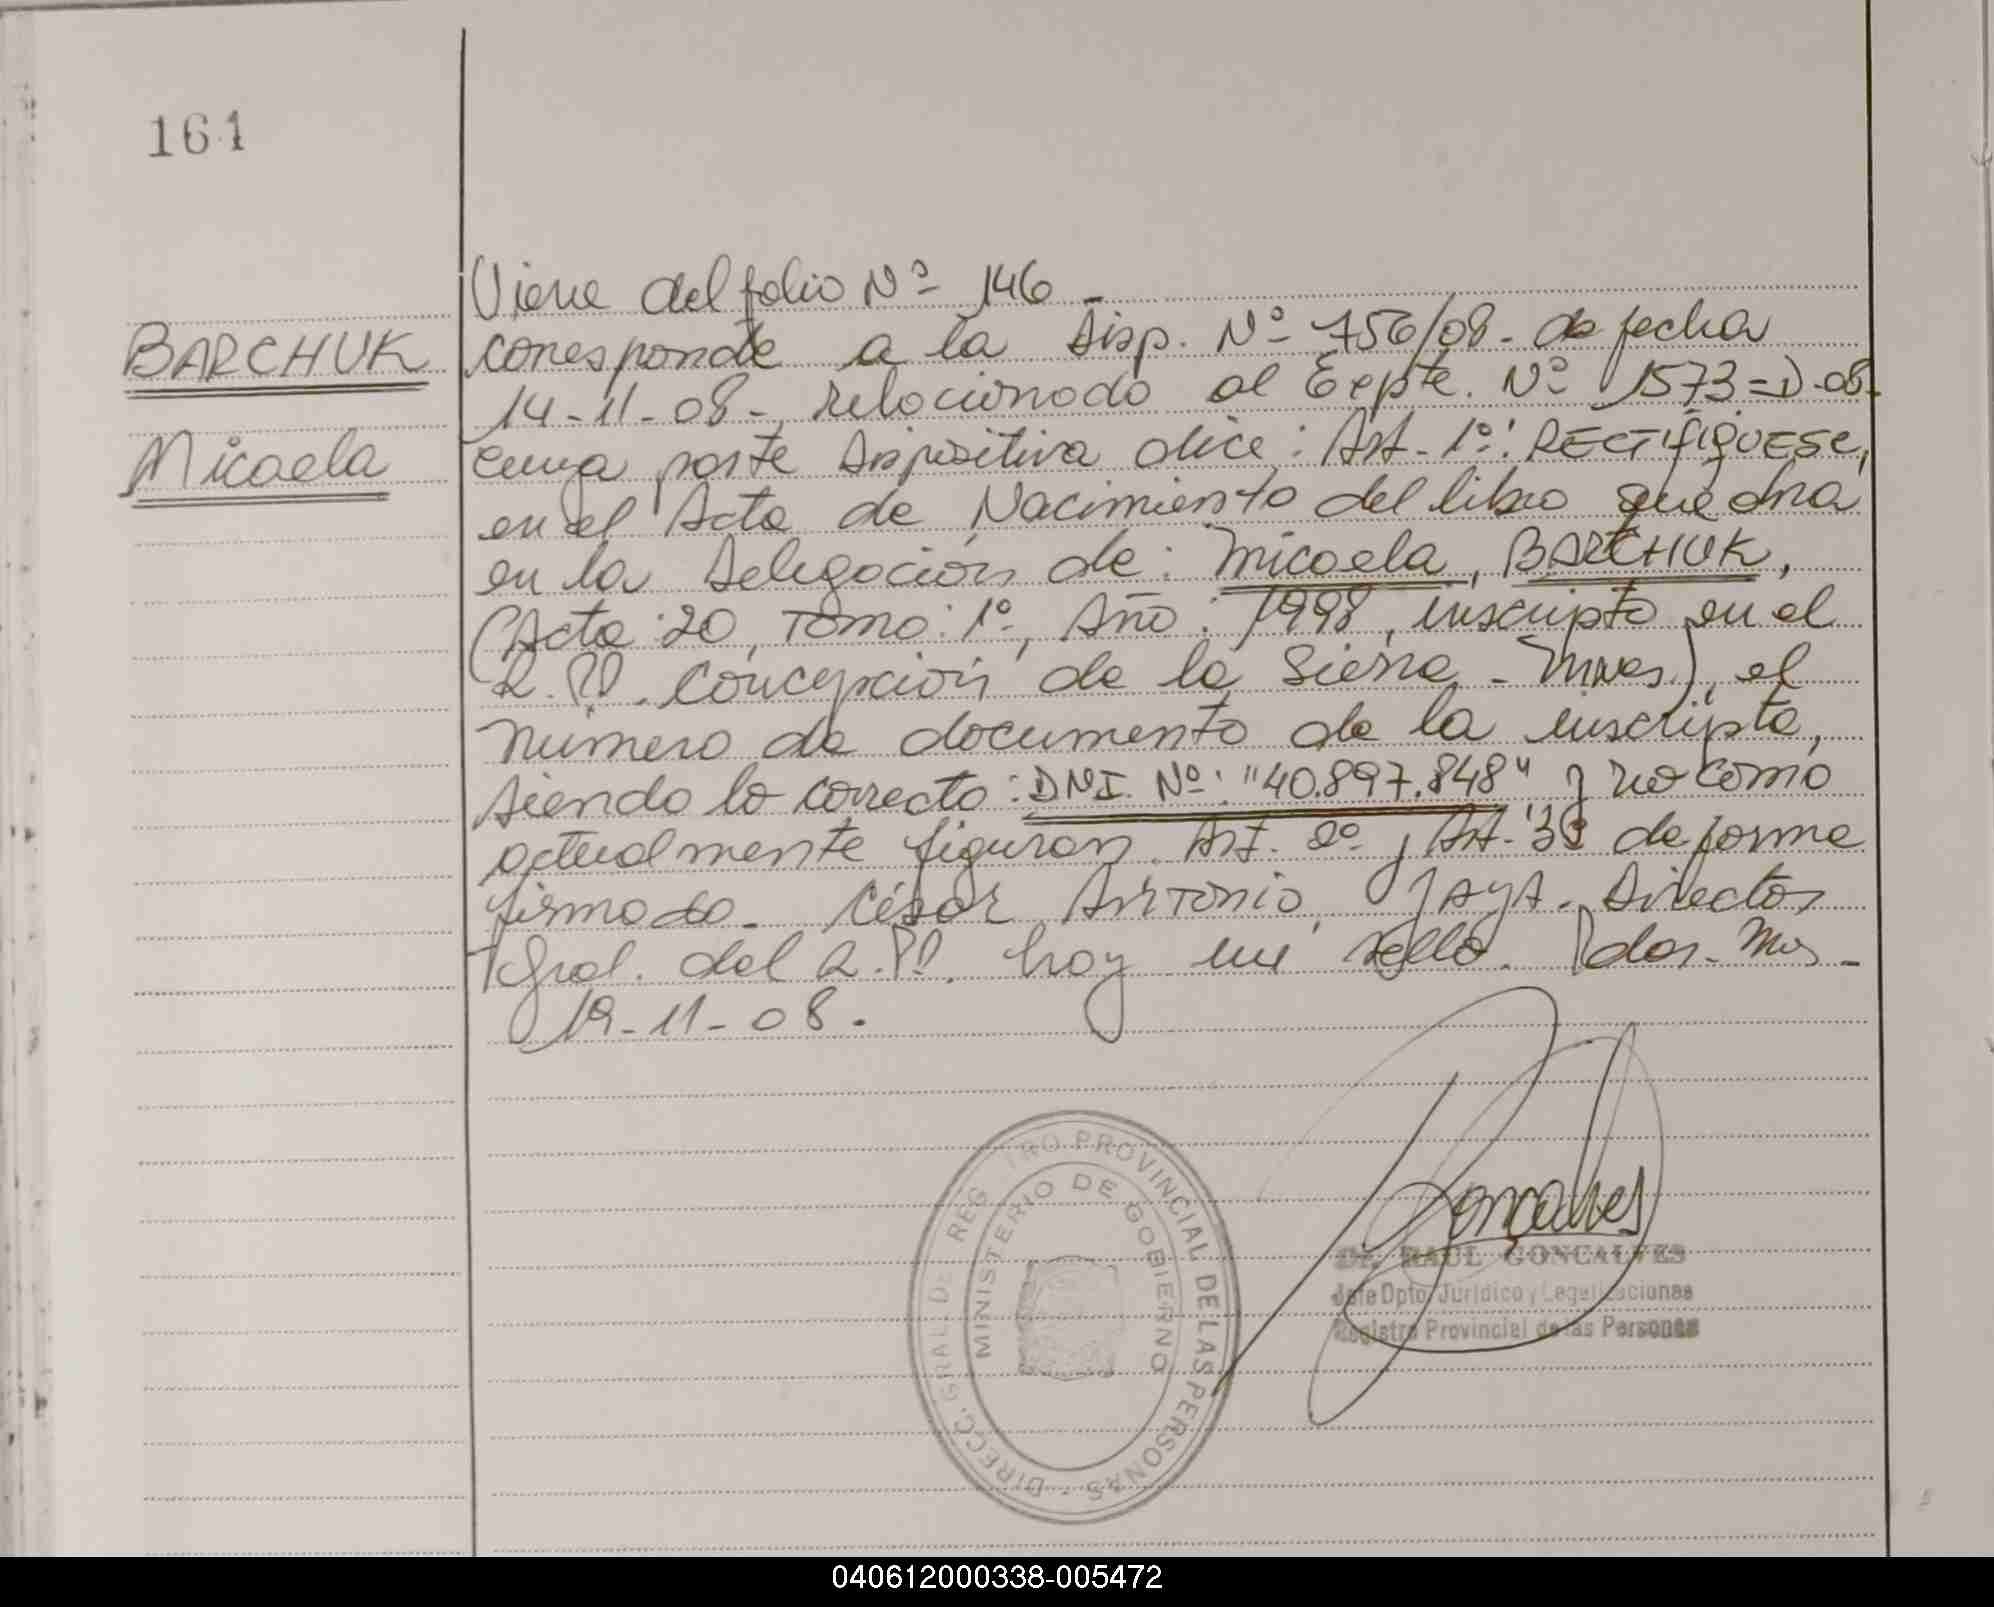 161
Viene del folio Nº 146 -
BARCHUK
corresponde a la Disp. Nº 756/08 - de fecha
14-11-08 - relacionado al Expte. Nº 1573=D-08-
Micaela
cuya parte dispositiva dice: Art. 1º: RECTIFIQUESE,
en el Acta de Nacimiento del libro que obra
en la Delegación de: Micaela, BARCHUK,
(Acta: 20, Tomo: 1º, Año: 1998, inscripto en el
R.P.P. Concepción de la Sierra - Mnes), el
número de documento de la inscripta,
siendo lo correcto: DNI. Nº: "40.897.848" y no como
actualmente figuran. Art. 2º y Art. 3º de forma
firmado. César Antonio JAYA. Director
Gral. del R.P.P. hay un sello. Pdas. Mns -
19-11-08.
DIRECC. GRAL. DE REG TRO PROVINCIAL DE LAS PERSONAS
MINISTERIO DE GOBIERNO
Goncalves
Dr. RAUL GONCALVES
Jefe Dpto. Jurídico y Legalizaciones
Registro Provincial de las Personas
040612000338-005472